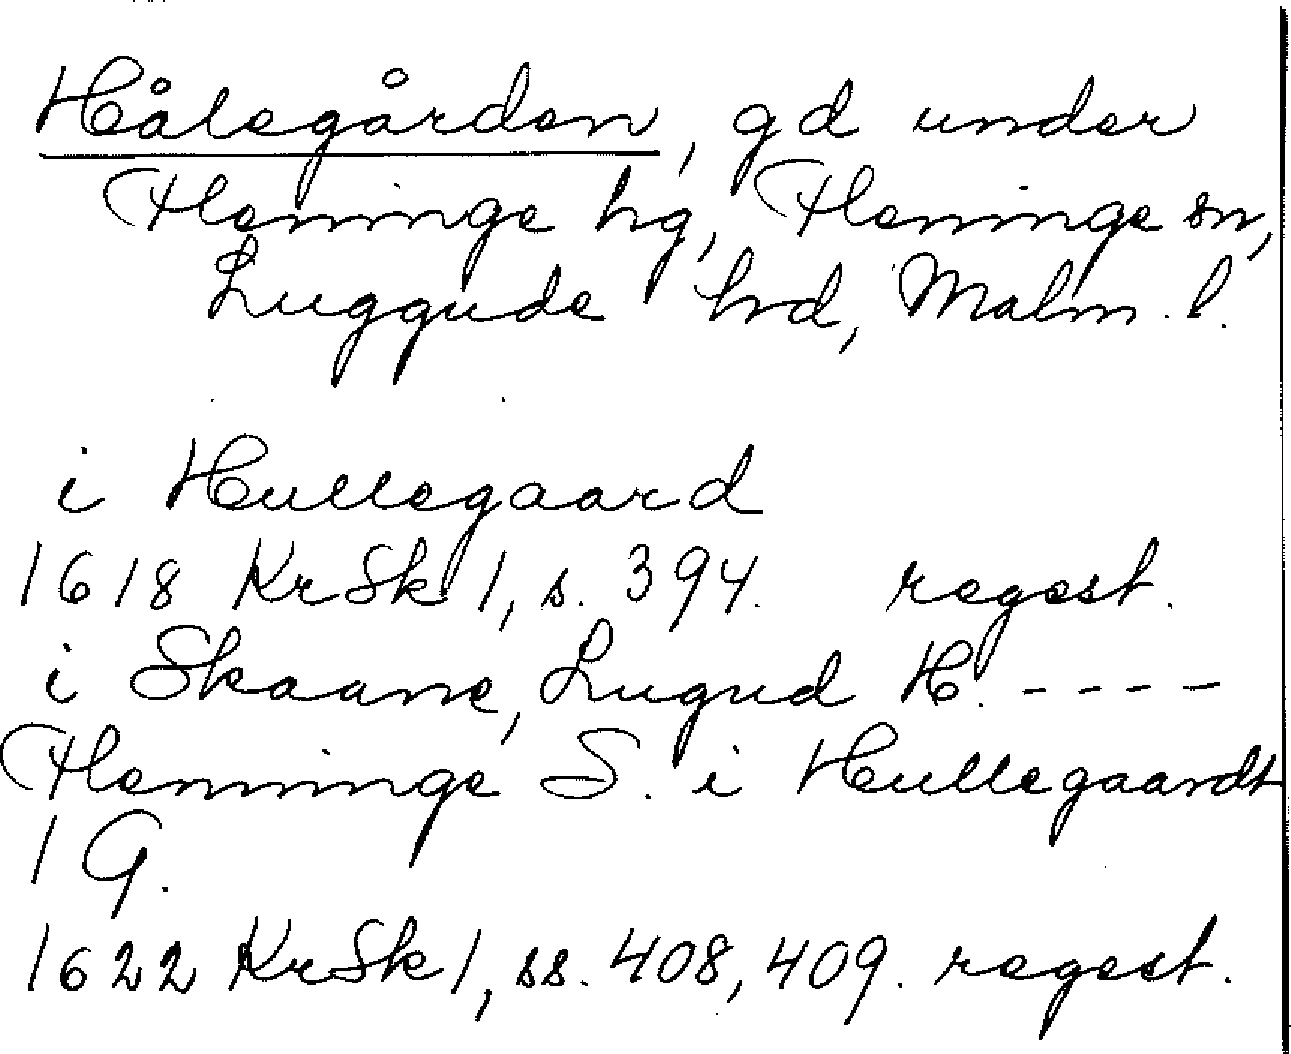 Hålegården, gd under
Fleninge hg, Fleninge sn,
Luggude hd, Malm. l.
i Hullegaard
1618 KrSk 1, s. 394. regest.
i Skaane, Lugud H. ----
Flenninge S. i Hullegaardt
1 G.
1622 KrSk 1, ss. 408, 409. regest.